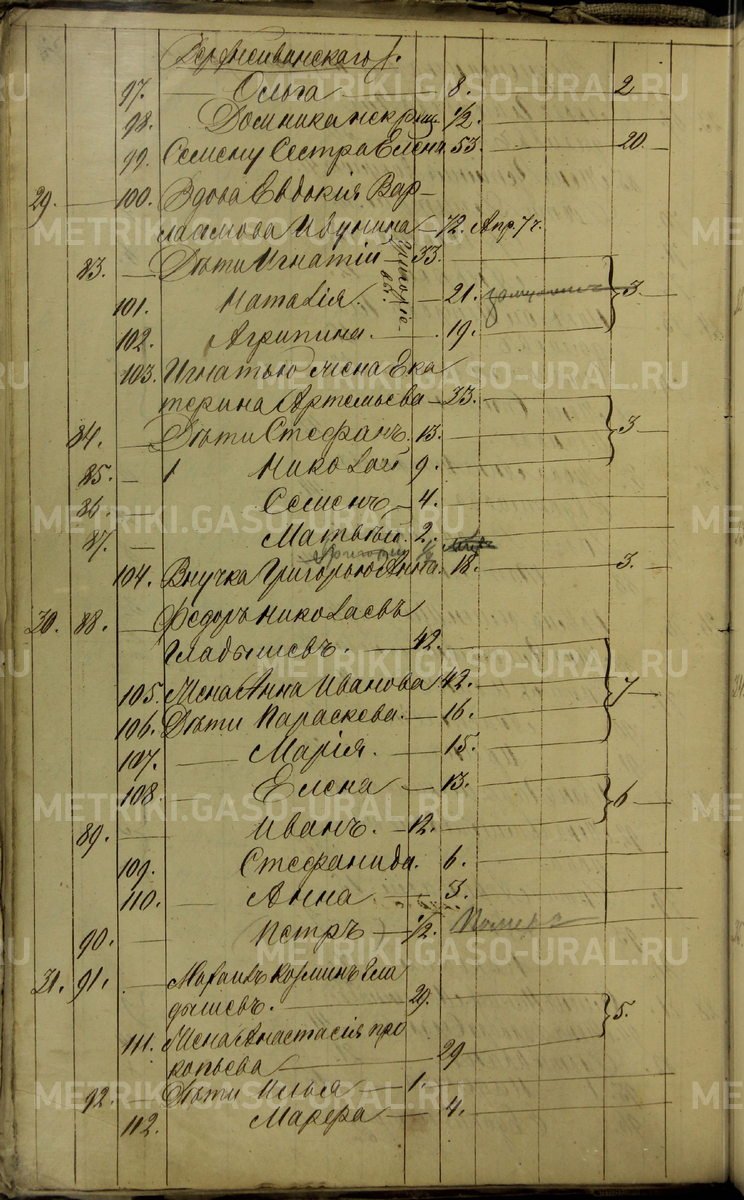 97. Ольга 8. 2
98. Домника 1/2.
99. Семену Сестра Елена. 53. 20.
29. 100. Вдова Евдокия Вар-
лаамова 72. Апр. 7 ч.
83. Дѣти Игнатій 33.
101. Наталія. 21. 3.
102. Агрипина. 19.
103. Игнатью жена Ека
терина Артемьева 33.
84. Дѣти Стефанъ. 13. 3
85. Николай 9.
86. Семенъ 4.
87. Матвѣй. 2.
Григорій
104. Внучка Григорью Анна. 18. 3.
30. 88. Федоръ Николаевъ
Гладышевъ. 42.
105. Жена Анна Иванова 42. 7
106. Дѣти Параскева. 16.
107. Марія. 15.
108. Елена 13. 6
89. Иванъ. 12.
109. Стефанида. 6.
110. Анна 3.
90. Петръ 1/2. Померъ
31. 91. Козминъ Гла
дышевъ. 29. 5.
111. Жена Анастасія Про
копьева 29
92. Дѣти Илья 1.
112. Марфа 4.
METRIKI.GASO-URAL.RU